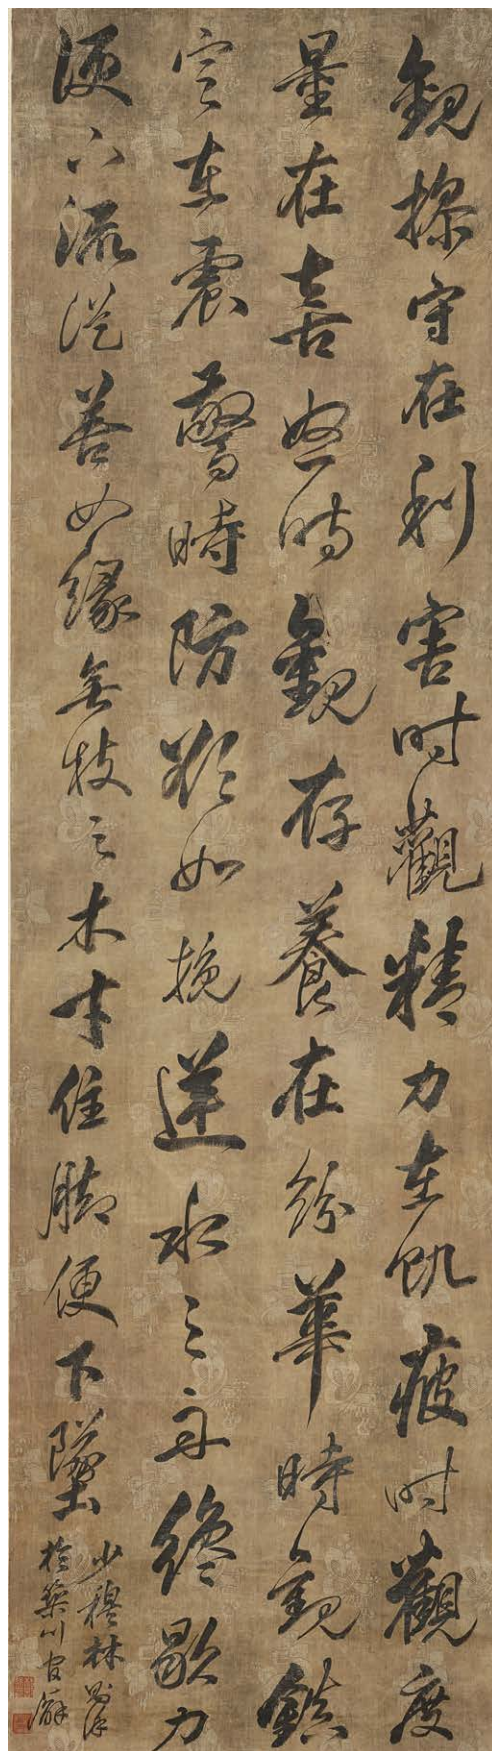 觀操守在利害時觀精力在飢疲時觀度
量在喜怒時觀存養在紛華時觀鎮
定在震驚時防欲如挽逆水之舟纔歇力
便下流從善如緣無枝之木才住腳便下墜
少穆林則徐
於川官廨